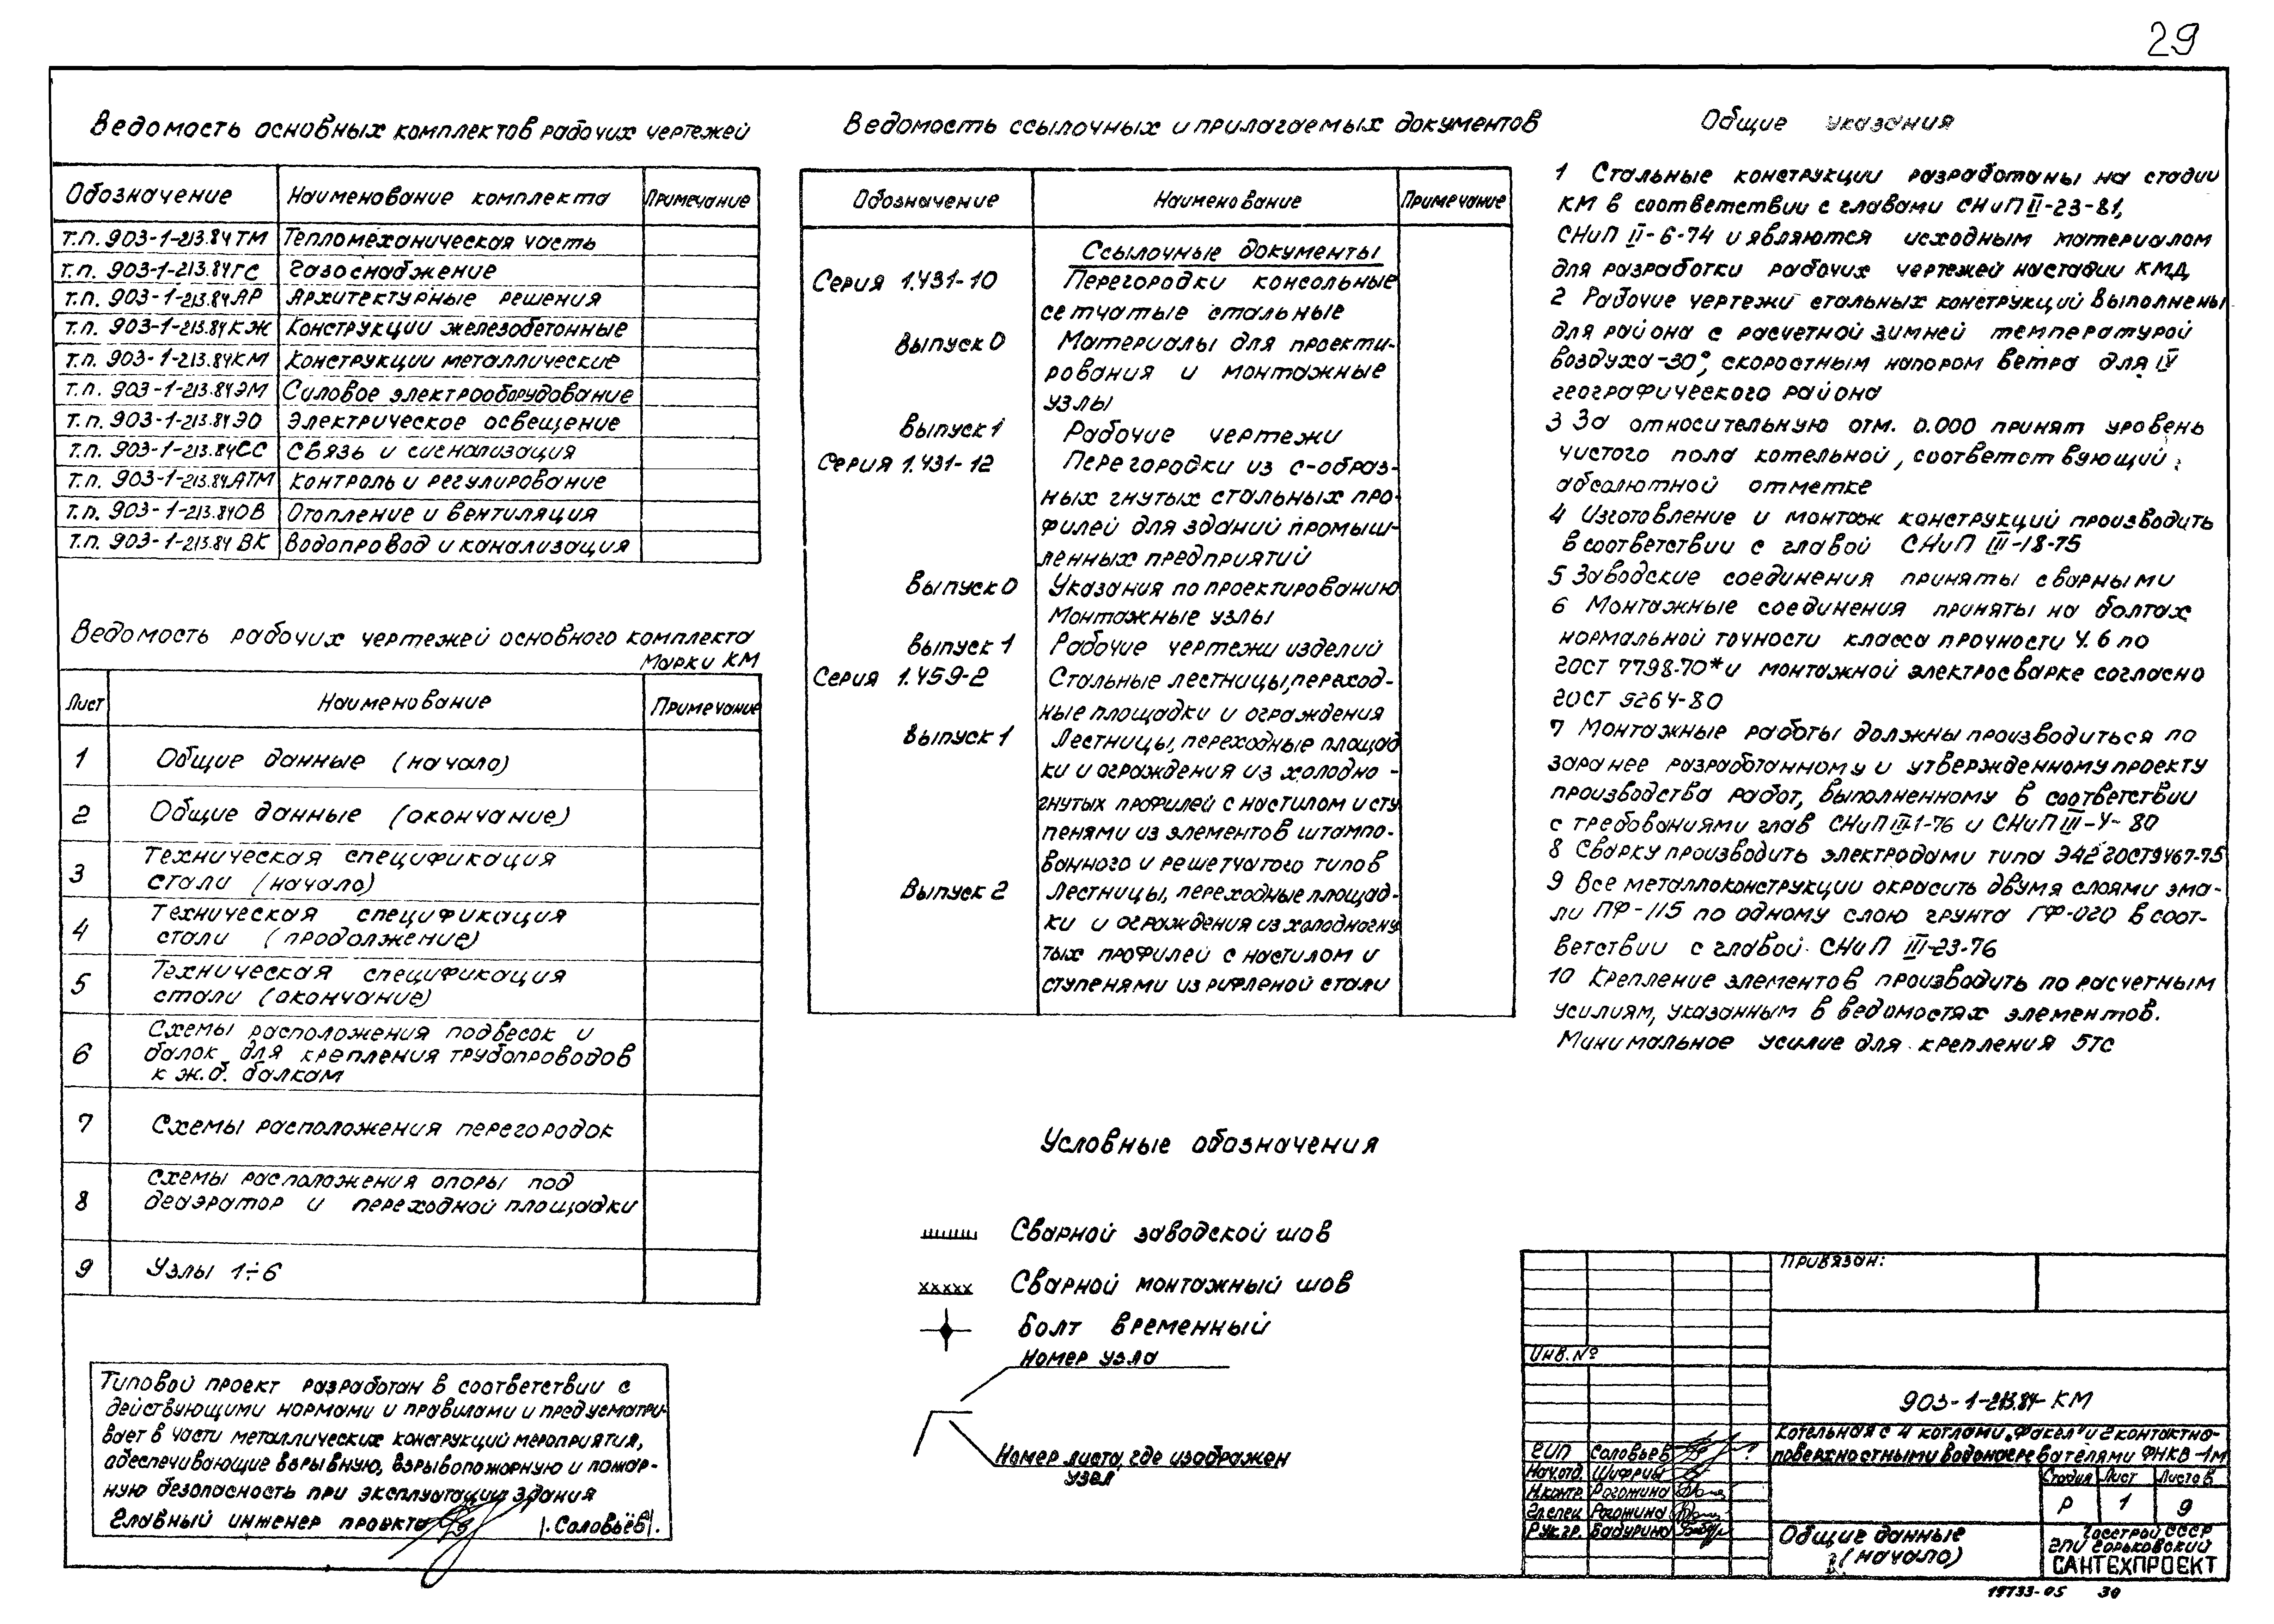 29
Ведомость основных комплектов рабочих чертежей
Обозначение Наименование комплекта Примечание
т.п. 903-1-213.84 ТМ Тепломеханическая часть
т.п. 903-1-213.84 ГС Газоснабжение
т.п. 903-1-213.84 АР Архитектурные решения
т.п. 903-1-213.84 КЖ Конструкции железобетонные
т.п. 903-1-213.84 КМ Конструкции металлические
т.п. 903-1-213.84 ЭМ Силовое электрооборудование
т.п. 903-1-213.84 ЭО Электрическое освещение
т.п. 903-1-213.84 СС Связь и сигнализация
т.п. 903-1-213.84 АТМ Контроль и регулирование
т.п. 903-1-213.84 ОВ Отопление и вентиляция
т.п. 903-1-213.84 ВК Водопровод и канализация
Ведомость рабочих чертежей основного комплекта
марки КМ
Лист Наименование Примечание
1 Общие данные (начало)
2 Общие данные (окончание)
3 Техническая спецификация
стали (начало)
4 Техническая спецификация
стали (продолжение)
5 Техническая спецификация
стали (окончание)
6 Схемы расположения подвесок и
балок для крепления трубопроводов
к ж.б. балкам
7 Схемы расположения перегородок
8 Схемы расположения опоры под
деаэратор и переходной площадки
9 Узлы 1÷6
Типовой проект разработан в соответствии с
действующими нормами и правилами и предусматри-
вает в части металлических конструкций мероприятия,
обеспечивающие взрывную, взрывопожарную и пожар-
ную безопасность при эксплуатации здания
Главный инженер проекта /.Соловьёв/.
Ведомость ссылочных и прилагаемых документов
Обозначение Наименование Примечание
Ссылочные документы
Серия 1.431-10 Перегородки консольные
сетчатые стальные
Выпуск 0 Материалы для проекти-
рования и монтажные
узлы
Выпуск 1 Рабочие чертежи
Серия 1.431-12 Перегородки из с-образ-
ных гнутых стальных про-
филей для зданий промыш-
ленных предприятий
Выпуск 0 Указания по проектированию
Монтажные узлы
Выпуск 1 Рабочие чертежи изделий
Серия 1.459-2 Стальные лестницы, переход-
ные площадки и ограждения
Выпуск 1 Лестницы, переходные площад
ки и ограждения из холодно -
гнутых профилей с настилом и сту
пенями из элементов штампо-
ванного и решетчатого типов
Выпуск 2 Лестницы, переходные площад-
ки и ограждения из холодногну
тых профилей с настилом и
ступенями из рифленой стали
Условные обозначения
Сварной заводской шов
Сварной монтажный шов
Болт временный
Номер узла
Номер листа, где изображен
узел
Общие указания
1 Стальные конструкции разработаны на стадии
КМ в соответствии с главами СНиП II-23-81,
СНиП II-6-74 и являются исходным материалом
для разработки рабочих чертежей на стадии КМД
2 Рабочие чертежи стальных конструкций выполнены
для района с расчетной зимней температурой
воздуха -30°, скоростным напором ветра для IV
географического района
3 За относительную отм. 0.000 принят уровень
чистого пола котельной, соответствующий
абсолютной отметке
4 Изготовление и монтаж конструкций производить
в соответствии с главой СНиП III-18-75
5 Заводские соединения приняты сварными
6 Монтажные соединения приняты на болтах
нормальной точности класса прочности 4.6 по
ГОСТ 7798-70* и монтажной электросварке согласно
ГОСТ 5264-80
7 Монтажные работы должны производиться по
заранее разработанному и утвержденному проекту
производства работ, выполненному в соответствии
с требованиями глав СНиП III-1-76 и СНиП III-4-80
8 Сварку производить электродами типа Э42 ГОСТ 9467-75
9 Все металлоконструкции окрасить двумя слоями эма-
ли ПФ-115 по одному слою грунта ГФ-020 в соот-
ветствии с главой СНиП III-23-76
10 Крепление элементов производить по расчетным
усилиям, указанным в ведомостях элементов.
Минимальное усилие для крепления 5тс
Привязан:
Инв. №
903-1-213.84-КМ
Котельная с 4 котлами „Факел" и 2 контактно-
поверхностными водонагревателями ФНКВ-1М
ГИП Соловьев
Нач.отд. Шифрин
Н.контр. Рогожина
Гл.спец. Рогожина
Рук.гр. Бабурина
Стадия Лист Листов
Р 1 9
Общие данные
(начало)
Госстрой СССР
ГПИ Горьковский
САНТЕХПРОЕКТ
19733-05 30